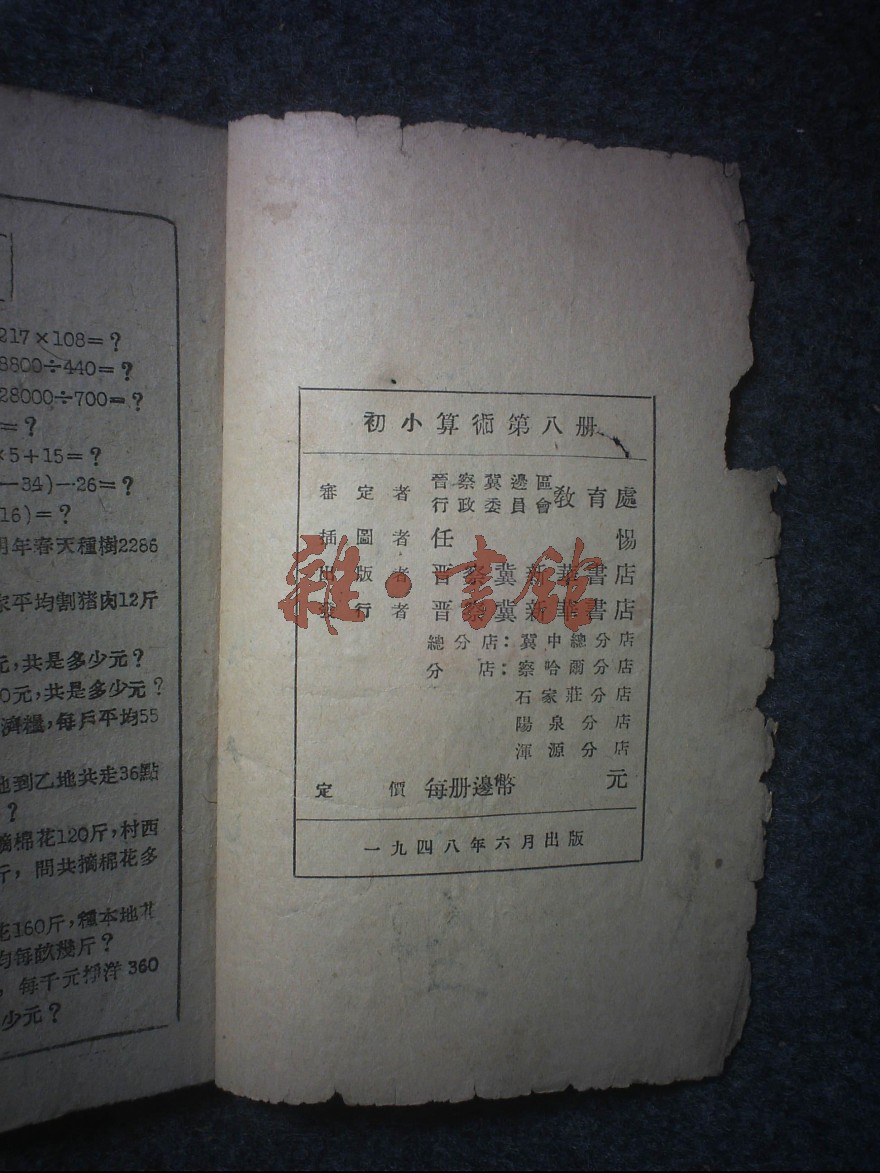 217×108=?
8800÷440=?
28000÷700=?
=?
×5+15=?
—34)—26=?
16)=?
明年春天種樹2286
家平均割猪肉12斤
元,共是多少元?
0元,共是多少元?
濟糧,每戶平均55
地到乙地共走36點
?
摘棉花120斤,村西
斤,問共摘棉花多
花160斤,種本地花
均每畝幾斤?
,每千元掙洋360
少元?
初小算術第八册
審定者 晉察冀邊區行政委員會教育處
插圖者 任惕
出版者 晋察冀新華書店
發行者 晋察冀新華書店
總分店:冀中總分店
分店:察哈爾分店
石家莊分店
陽泉分店
渾源分店
定價 每册邊幣 元
一九四八年六月出版
雜·書館